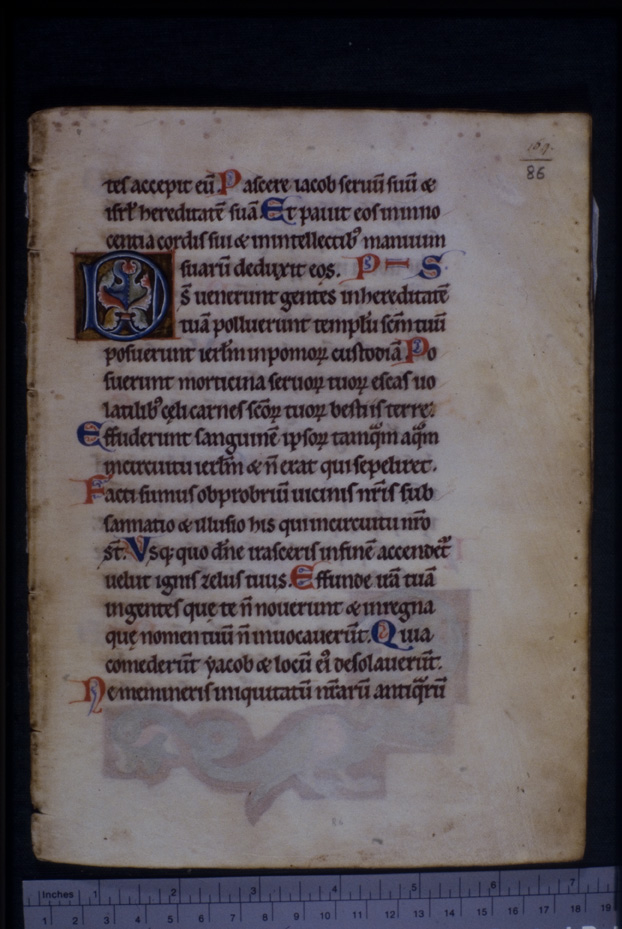 169.
86
tes accepit eū Pascere iacob seruū suū &
isrl' hereditatē suā Et pauit eos in inno
centia cordis sui & in intellectib; manuum
suarū deduxit eos. P – S
DS̄ uenerunt gentes in hereditatē
tuā polluerunt templū sc̄m tuū
posuerunt ierl̄m in pomoꝝ custodiā Po
suerunt morticina seruoꝝ tuoꝝ escas uo
latilib; cęli carnes sc̄oꝝ tuoꝝ bestiis terrę.
Effuderunt sanguinē ipsoꝝ tamqͣm aqͣm
in circuitu ierl̄m & n̄ erat qui sepeliret.
Facti sumus obprobriū uicinis nr̄is sub
sannatio & illusio his qui in circuitu nr̄o
st̄. Vsq; quo dn̄e irasceris in finē accendet᷑
uelut ignis zelus tuus. Effunde irā tuā
in gentes quę te n̄ nouerunt & in regna
quę nomen tuū n̄ inuocauerūt. Quia
comederūt yacob & locū ei' desolauerūt.
Ne memineris iniquitatū nr̄arū antiqͣrū
Inches 1 2 3 4 5 6 7
1 2 3 4 5 6 7 8 9 10 11 12 13 14 15 16 17 18 19